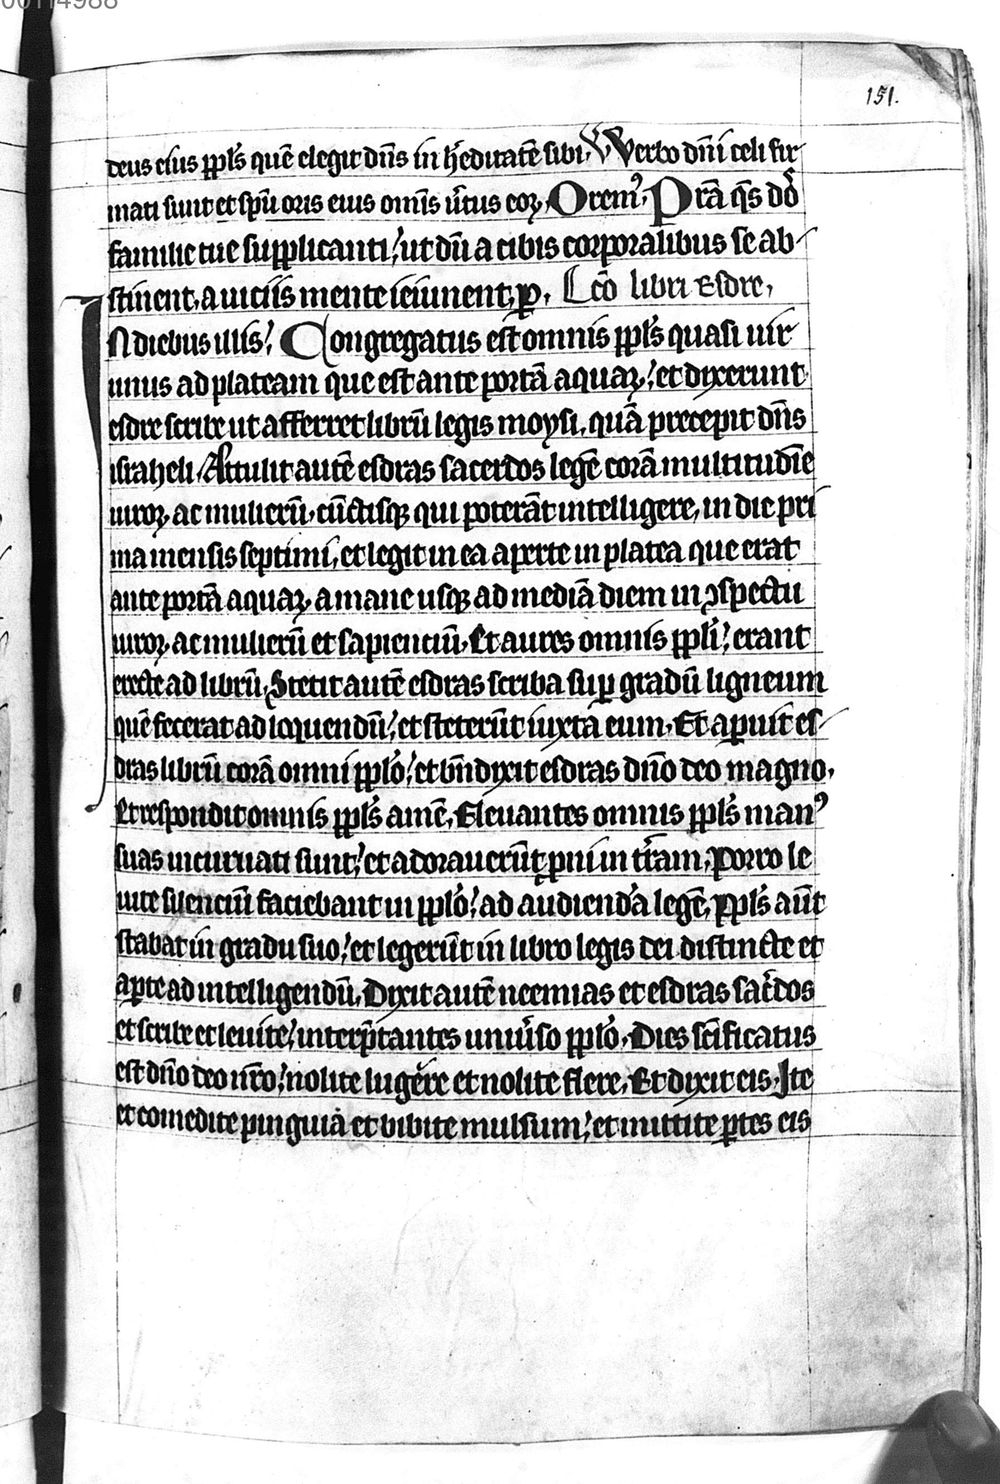 00114988
151.
deus eius ppl̄s quē elegit dn̄s in h̄editatē sibi. V̄ Verbo dn̄i celi fir
mati sunt et spū oris eius om̄is v̄tus eoꝝ. Orem⁹. Pr̄a q̄s do̅
familie tue supplicanti: ut dū a cibis corporalibus se ab
stinent, a uiciis mente ieiunent. ꝑ. Lcō libri Esdre.
IN diebus illis: Congregatus est omnis ppl̄s quasi uir
unus ad plateam que est ante portā aquaꝝ: et dixerunt
esdre scribe ut afferret librū legis moysi, quā precepit dn̄s
israheli. Attulit autē esdras sacerdos legē corā multitudīe
uiroꝝ ac mulierū, cūctisqꝫ qui poterāt intelligere, in die pri
ma mensis septimi, et legit in ea aperte in platea que erat
ante portā aquaꝝ, a mane usqꝫ ad mediā diem in ꝯspectu
uiroꝝ ac mulierū et sapienciū. Et aures omnis ppl̄i: erant
erecte ad librū. Stetit autē esdras scriba suꝑ gradū ligneum
quē fecerat ad loquendū: et steterūt iuxta eum. Et aꝑuit es
dras librū corā omni ppl̄o: et bn̄dixit esdras dn̄o deo magno.
Et respondit omnis ppl̄s amē. Eleuantes omnis ppl̄s man⁹
suas incuruati sunt: et adorauerūt ꝓni in tr̄am. Porro le
uite silenciū faciebant in ppl̄o: ad audiendā legē. Ppl̄s aūt
stabat in gradu suo: et legerūt in libro legis dei distincte et
aꝑte ad intelligendū. Dixit autē neemias et esdras sac̄dos
et scribe et leuite: interp̄tantes uniūso ppl̄o. Dies sc̄ificatus
est dn̄o deo nr̄o: nolite lugere et nolite flere. Et dixit eis. Ite
et comedite pinguia et bibite mulsum: et mittite ꝑtes eis